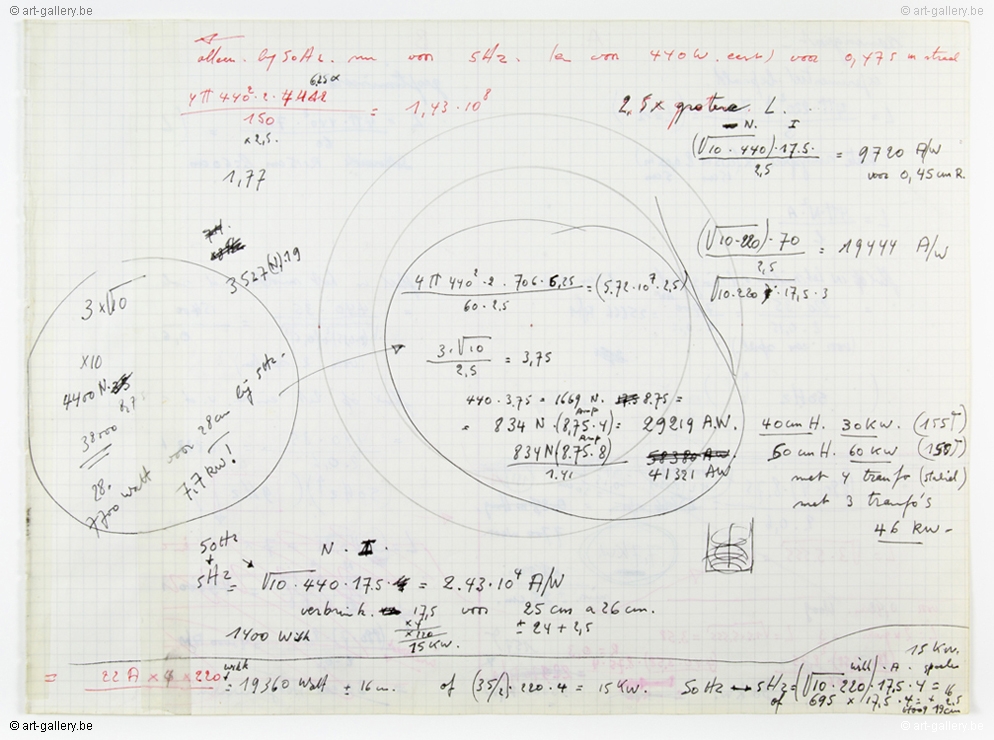 © art-gallery.be © art-gallery.be
alleen bij 50Hz. van 5Hz. 440W. voor 0,475 m straal
6,25
4π 440² · 2 ·
150 = 1,43 · 10⁸
x 2,5.
1,77
2,5x grotere L.
N. I
(√10 · 440) · 17.5 ·
2,5 = 9720 A/W
voor 0,45cm R.
(√10 · 220) · 70
2,5 = 19444 A/W
√10 · 220 · 17,5 · 3
3527(N).19
3 x √10
x10
4400 N.
8,75
38000
28.
7700 watt
voor 28cm bij 5Hz.
7.7 kW!
4π 440² · 2 · 706 · 6,25
60 · 2,5 = (5.72 · 10⁷ · 2,5)
3 · √10
2,5 = 3,75
440 · 3,75 = 1669 N. 8.75 =
Amp
= 834 N · (8,75 · 4) = 29219 A.W.
Amp
834N (8.75 · 8)
1.41 41321 AW
40cm H. 30kw. (155T)
50cm H. 60 KW
met 4 tranfo
met 3 tranfo's
46 kw-
50Hz
+
5Hz
N · I.
= √10 · 440 · 17.5 · 4 = 2.43 · 10⁴ A/W
verbruik. 17,5 voor 25 cm a 26 cm.
x 4 ± 24 + 2,5
1400 Watt x 220
15 KW.
15 KW.
= 22 A x 4 x 220 = 19360 Watt ± 16 cm. of (35/2) · 220 · 4 = 15 KW. 50Hz → 5Hz = (√10 · 220) · 17.5 · 4 =
of 695 x 17,5 · 4 =
hoog 19cm
© art-gallery.be © art-gallery.be